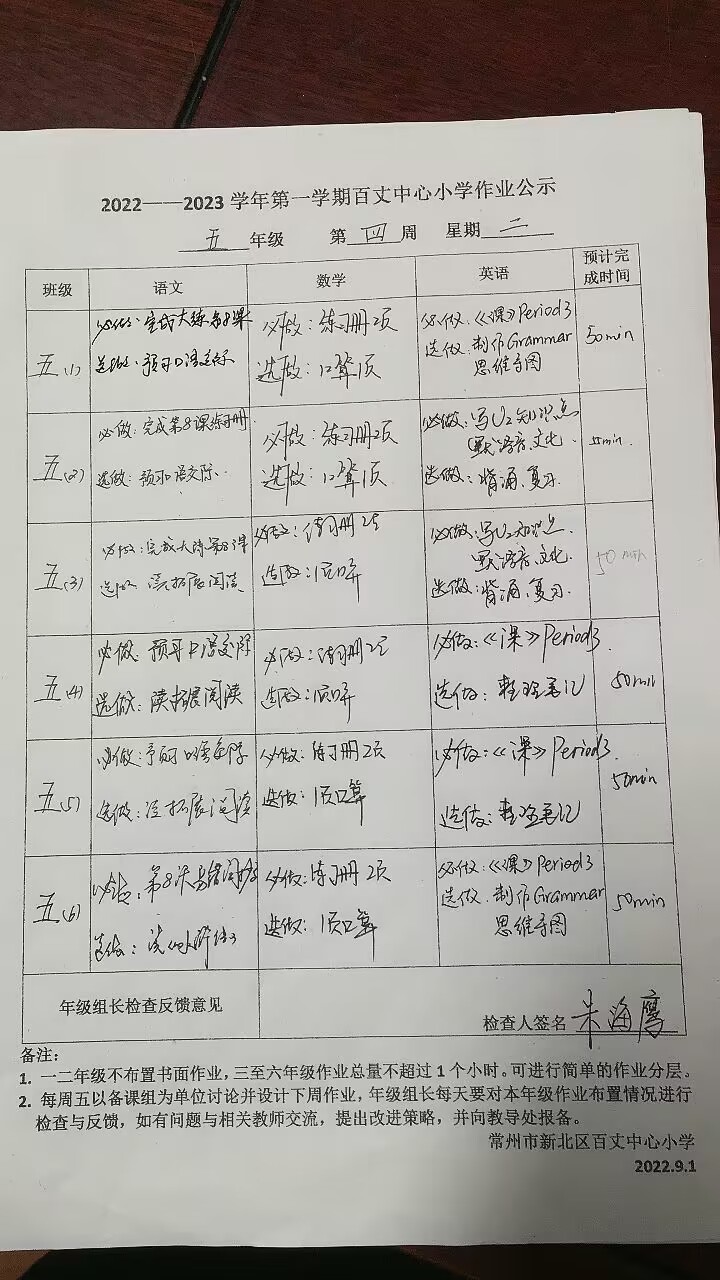 2022——2023 学年第一学期百丈中心小学作业公示
五 年级 第 四 周 星期 二
班级 语文 数学 英语 预计完成时间
五(1)
必做：完成大练第8课
选做：预习口语交际
必做：练习册2页
选做：口算1页
必做：《课》Period3
选做：制作Grammar
思维导图
50min
五(2)
必做：完成第8课练习册
选做：预习口语交际
必做：练习册2页
选做：口算1页
必做：写U2知识点
默语音、文化.
选做：背诵、复习.
min.
五(3)
必做：完成大练第8课
选做：读拓展阅读
必做：练习册2页
选做：1页口算
必做：写U2知识点
默语音、文化.
选做：背诵、复习.
50min
五(4)
必做：预习口语交际
选做：读拓展阅读
必做：练习册2页
选做：1页口算
必做：《课》Period3.
选做：整理笔记
50min
五(5)
必做：预习口语交际
选做：读拓展阅读
必做：练习册2页
选做：1页口算
必做：《课》Period3.
选做：整理笔记
50min
五(6)
必做：第8课
选做：读
必做：练习册2页
选做：1页口算
必做：《课》Period3
选做：制作Grammar
思维导图
50min
年级组长检查反馈意见
检查人签名 朱海鹰
备注：
1. 一二年级不布置书面作业，三至六年级作业总量不超过1个小时。可进行简单的作业分层。
2. 每周五以备课组为单位讨论并设计下周作业，年级组长每天要对本年级作业布置情况进行
检查与反馈，如有问题与相关教师交流，提出改进策略，并向教导处报备。
常州市新北区百丈中心小学
2022.9.1